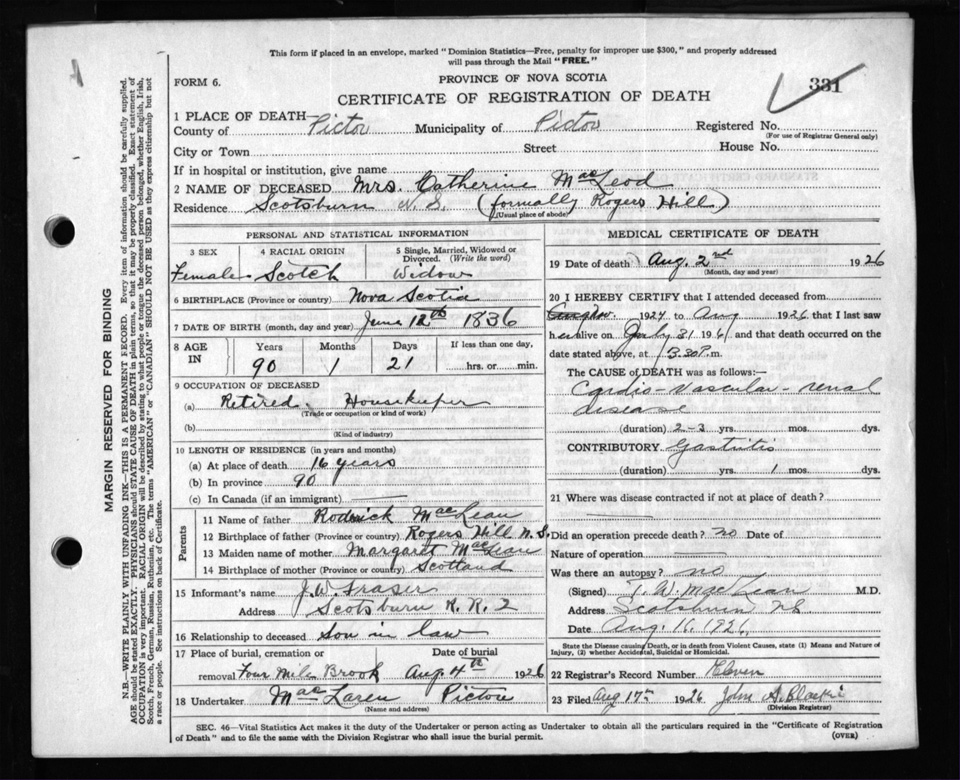 This form if placed in an envelope, marked "Dominion Statistics—Free, penalty for improper use $300," and properly addressed
will pass through the Mail "FREE."
FORM 6.
PROVINCE OF NOVA SCOTIA
331
CERTIFICATE OF REGISTRATION OF DEATH
1 PLACE OF DEATH
County of Pictou Municipality of Pictou Registered No.
(For use of Registrar General only)
City or Town Street House No.
If in hospital or institution, give name
2 NAME OF DECEASED Mrs. Catherine MacLeod
Residence Scotsburn N.S. (formally Rogers Hill)
(Usual place of abode)
PERSONAL AND STATISTICAL INFORMATION
3 SEX 4 RACIAL ORIGIN 5 Single, Married, Widowed or
Divorced. (Write the word)
Female Scotch Widow
6 BIRTHPLACE (Province or country) Nova Scotia
7 DATE OF BIRTH (month, day and year) June 12th 1836
8 AGE IN Years Months Days If less than one day,
90 1 21 hrs. or min.
9 OCCUPATION OF DECEASED
(a) Retired Housekeeper
(Trade or occupation or kind of work)
(b)
(Kind of industry)
10 LENGTH OF RESIDENCE (in years and months)
(a) At place of death 16 years
(b) In province 90
(c) In Canada (if an immigrant)
Parents
11 Name of father Rodrick MacLean
12 Birthplace of father (Province or country) Rogers Hill N.S.
13 Maiden name of mother Margaret MacLean
14 Birthplace of mother (Province or country) Scotland
15 Informant's name J.W. Fraser
Address Scotsburn R.R.2
16 Relationship to deceased Son in law
17 Place of burial, cremation or Date of burial
removal Four Mile Brook Aug 4th 1926
18 Undertaker MacLaren Pictou
(Name and address)
MEDICAL CERTIFICATE OF DEATH
19 Date of death Aug. 2nd 1926
(Month, day and year)
20 I HEREBY CERTIFY that I attended deceased from
1924 to Aug 1926 that I last saw
her alive on July 31 1926 and that death occurred on the
date stated above, at 3.30 P.m.
The CAUSE of DEATH was as follows:—
Cardio-Vascular-renal
disease
(duration) 2-3 yrs. mos. dys.
CONTRIBUTORY Gastritis
(duration) yrs. 1 mos. dys.
21 Where was disease contracted if not at place of death?
Did an operation precede death? no Date of
Nature of operation
Was there an autopsy? no
(Signed) MacLean M.D.
Address Scotsburn NS
Date Aug. 16, 1926
State the Disease causing Death, or in death from Violent Causes, state (1) Means and Nature of
Injury, (2) whether Accidental, Suicidal or Homicidal.
22 Registrar's Record Number Eleven
23 Filed Aug 17th 1926 John S. Blaikie
(Division Registrar)
SEC. 46—Vital Statistics Act makes it the duty of the Undertaker or person acting as Undertaker to obtain all the particulars required in the "Certificate of Registration
of Death" and to file the same with the Division Registrar who shall issue the burial permit.
(OVER)
MARGIN RESERVED FOR BINDING
N.B.—WRITE PLAINLY WITH UNFADING INK—THIS IS A PERMANENT RECORD. Every item of information should be carefully supplied.
AGE should be stated EXACTLY. PHYSICIANS should STATE CAUSE OF DEATH in plain terms, so that it may be properly classified. Exact statement of
OCCUPATION is very important. RACIAL ORIGIN will be described by stating to what people or tongue the deceased person belonged, whether English, Irish,
Scotch, French, German, Russian, Ruthenian, etc. The terms "AMERICAN" or "CANADIAN" SHOULD NOT BE USED as they express citizenship but not
a race or people. See instructions on back of Certificate.